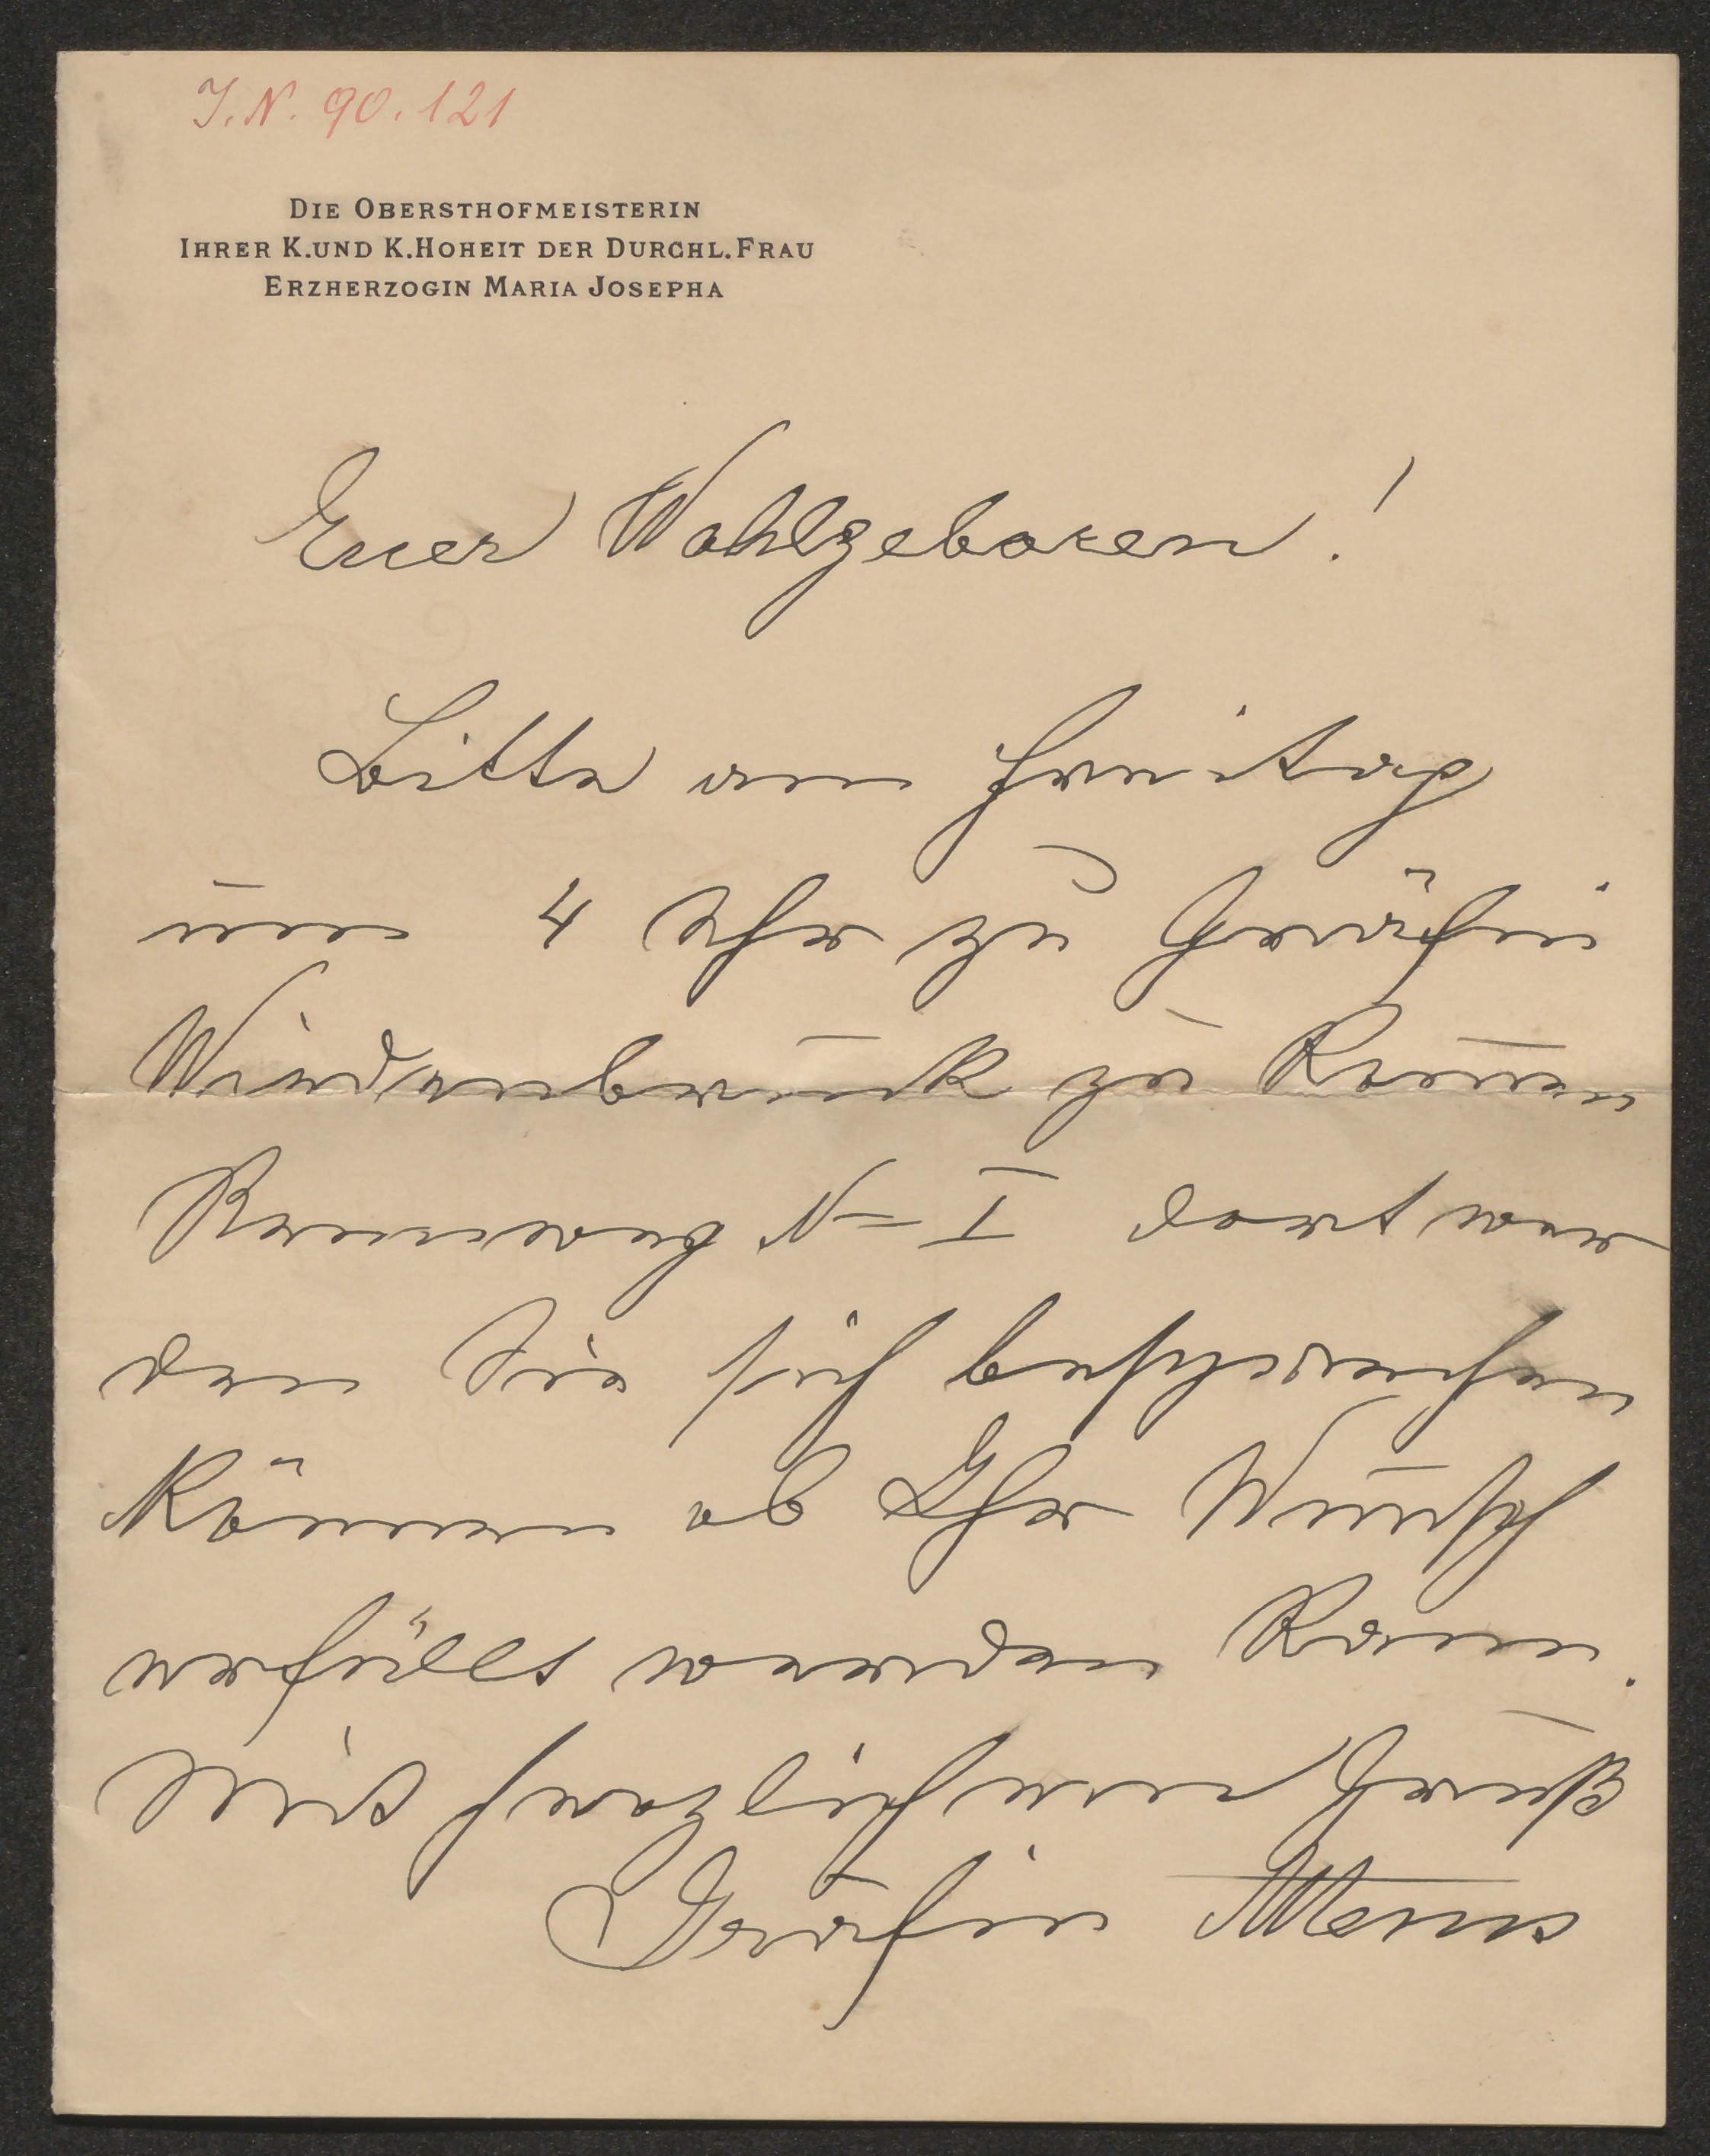 J.N. 90.121
DIE OBERSTHOFMEISTERIN
IHRER K.UND K.HOHEIT DER DURCHL.FRAU
ERZHERZOGIN MARIA JOSEPHA
Euer Wohlgeboren!
Bitte am Freitag
um 4 Uhr zu Gräfin
zu kommen
Rennweg N= I dort wer
den Sie sich besprechen
können ob Ihr Wunsch
erfüllt werden kann.
Mit herzlichem Gruß
Gräfin